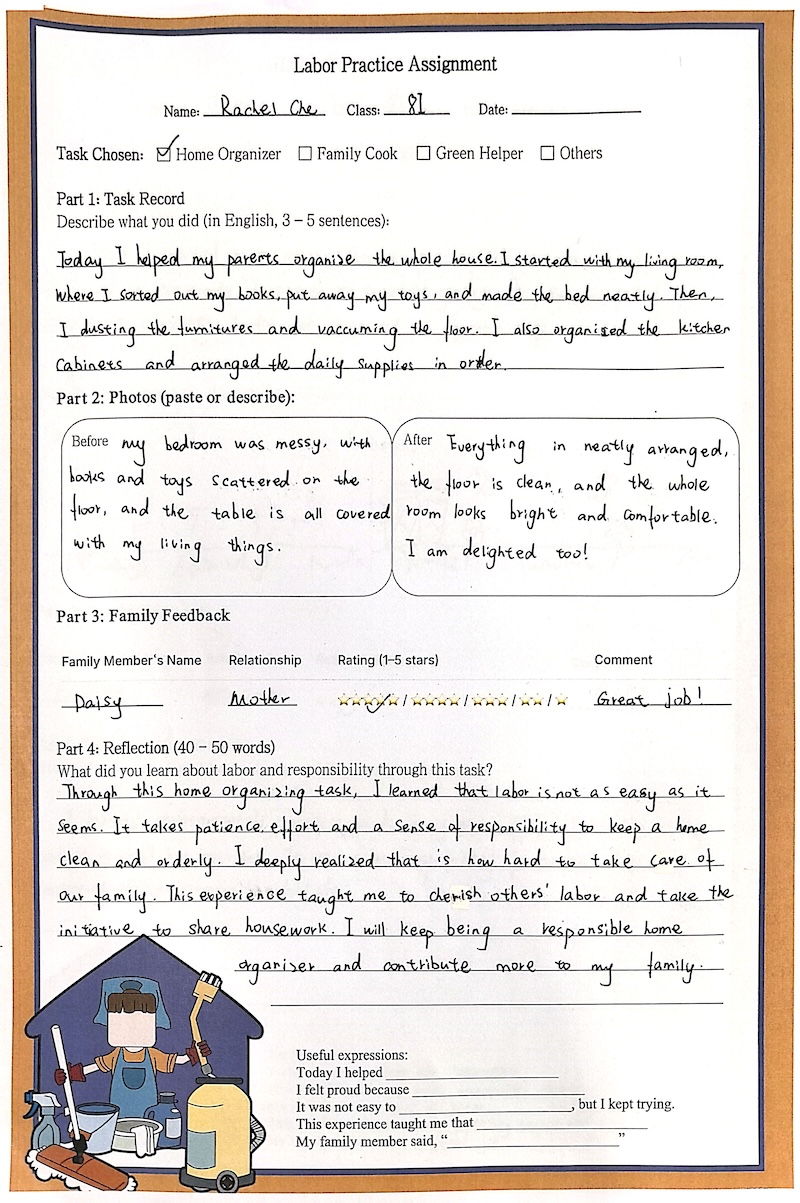 Labor Practice Assignment
Name: Rachel Che Class: 8I Date:
Task Chosen: ☑ Home Organizer ☐ Family Cook ☐ Green Helper ☐ Others
Part 1: Task Record
Describe what you did (in English, 3 – 5 sentences):
Today I helped my parents organise the whole house. I started with my living room,
where I sorted out my books, put away my toys, and made the bed neatly. Then,
I dusting the furnitures and vaccuming the floor. I also organised the kitchen
cabinets and arranged the daily supplies in order.
Part 2: Photos (paste or describe):
Before my bedroom was messy, with
books and toys scattered on the
floor, and the table is all covered
with my living things.
After Everything in neatly arranged,
the floor is clean, and the whole
room looks bright and comfortable.
I am delighted too!
Part 3: Family Feedback
Family Member's Name Relationship Rating (1–5 stars) Comment
Daisy Mother ⭐⭐⭐⭐⭐/⭐⭐⭐⭐/⭐⭐⭐/⭐⭐/⭐ Great job!
Part 4: Reflection (40 – 50 words)
What did you learn about labor and responsibility through this task?
Through this home organizing task, I learned that labor is not as easy as it
seems. It takes patience, effort and a sense of responsibility to keep a home
clean and orderly. I deeply realized that is how hard to take care of
our family. This experience taught me to cherish others' labor and take the
initiative to share housework. I will keep being a responsible home
organiser and contribute more to my family.
Useful expressions:
Today I helped
I felt proud because
It was not easy to , but I kept trying.
This experience taught me that
My family member said, “ ”